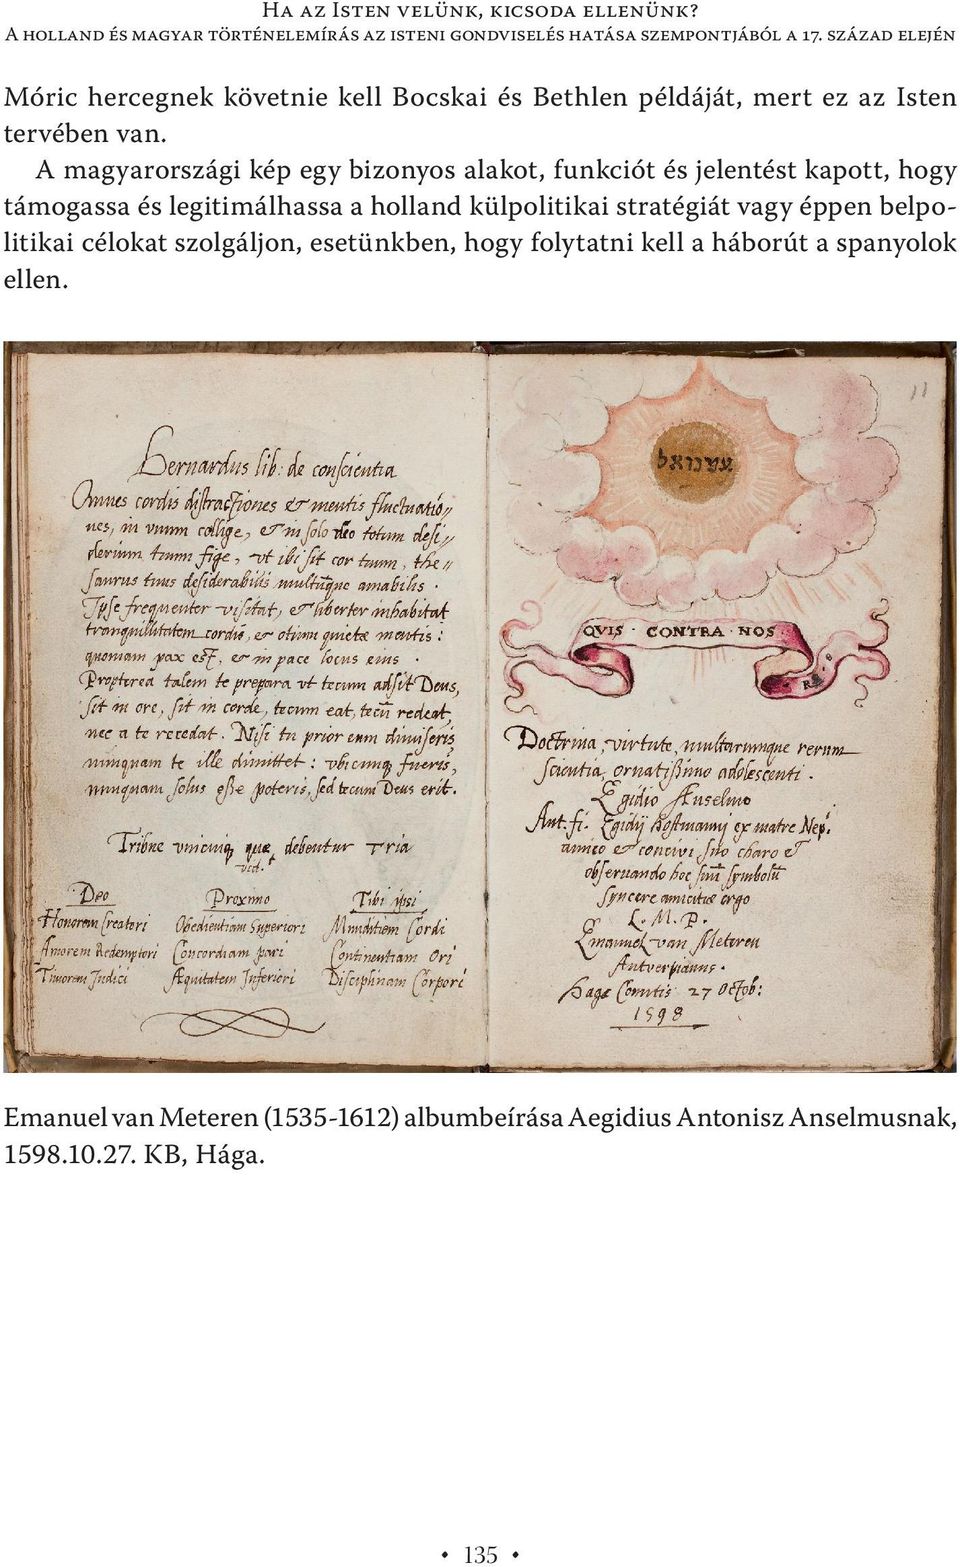 Ha az Isten velünk, kicsoda ellenünk?
A holland és magyar történelemírás az isteni gondviselés hatása szempontjából a 17. század elején
Móric hercegnek követnie kell Bocskai és Bethlen példáját, mert ez az Isten
tervében van.
A magyarországi kép egy bizonyos alakot, funkciót és jelentést kapott, hogy
támogassa és legitimálhassa a holland külpolitikai stratégiát vagy éppen belpo-
litikai célokat szolgáljon, esetünkben, hogy folytatni kell a háborút a spanyolok
ellen.
Bernardus lib. de conscientia
Omnes cordis distractiones & mentis fluctuatio,,
nes, in vnum collige, & in solo deo totum desi,,
derium tuum fige, vt ibi sit cor tuum, the,,
saurus tuus desiderabilis multũque amabilis.
Ipse frequenter visitat, & liberter inhabitat
tranquillitatem cordis, & otium quietæ mentis:
quoniam pax est, & in pace locus eius.
Propterea talem te prepara vt tecum adsit Deus,
sit in ore, sit in corde, tecum eat, tecũ redeat,
nec a te recedat. Nisi tu prior eum dimiseris,
nunquam te ille dimittet: vbicunq fueris,
nunquam solus esse poteris, sed tecum Deus erit.
Tribue vnicuiq quæ debentur tria
vid.
Deo Proximo Tibi ipsi
Honorem Creatori Obedientiam Superiori Munditiem Cordi
Amorem Redemptori Concordiam pari Continentiam Ori
Timorem Judici Æquitatem Inferiori Disciplinam Corpori
11
QVIS · CONTRA · NOS ·
RO. 8
Doctrina, virtute, multarumque rerum
scientia, ornatissimo adolescenti.
Egidio Anselmo
Ant. fi. Egidij Hoftmannj ex matre Nep.
amico & concivi suo charo &
obseruando hoc suũ symbolũ
syncere amicitiæ ergo
L. M. P.
Emanuel van Meteren
Antverpianus.
Hagæ Comitis 27 Octob:
1598
Emanuel van Meteren (1535-1612) albumbeírása Aegidius Antonisz Anselmusnak,
1598.10.27. KB, Hága.
• 135 •